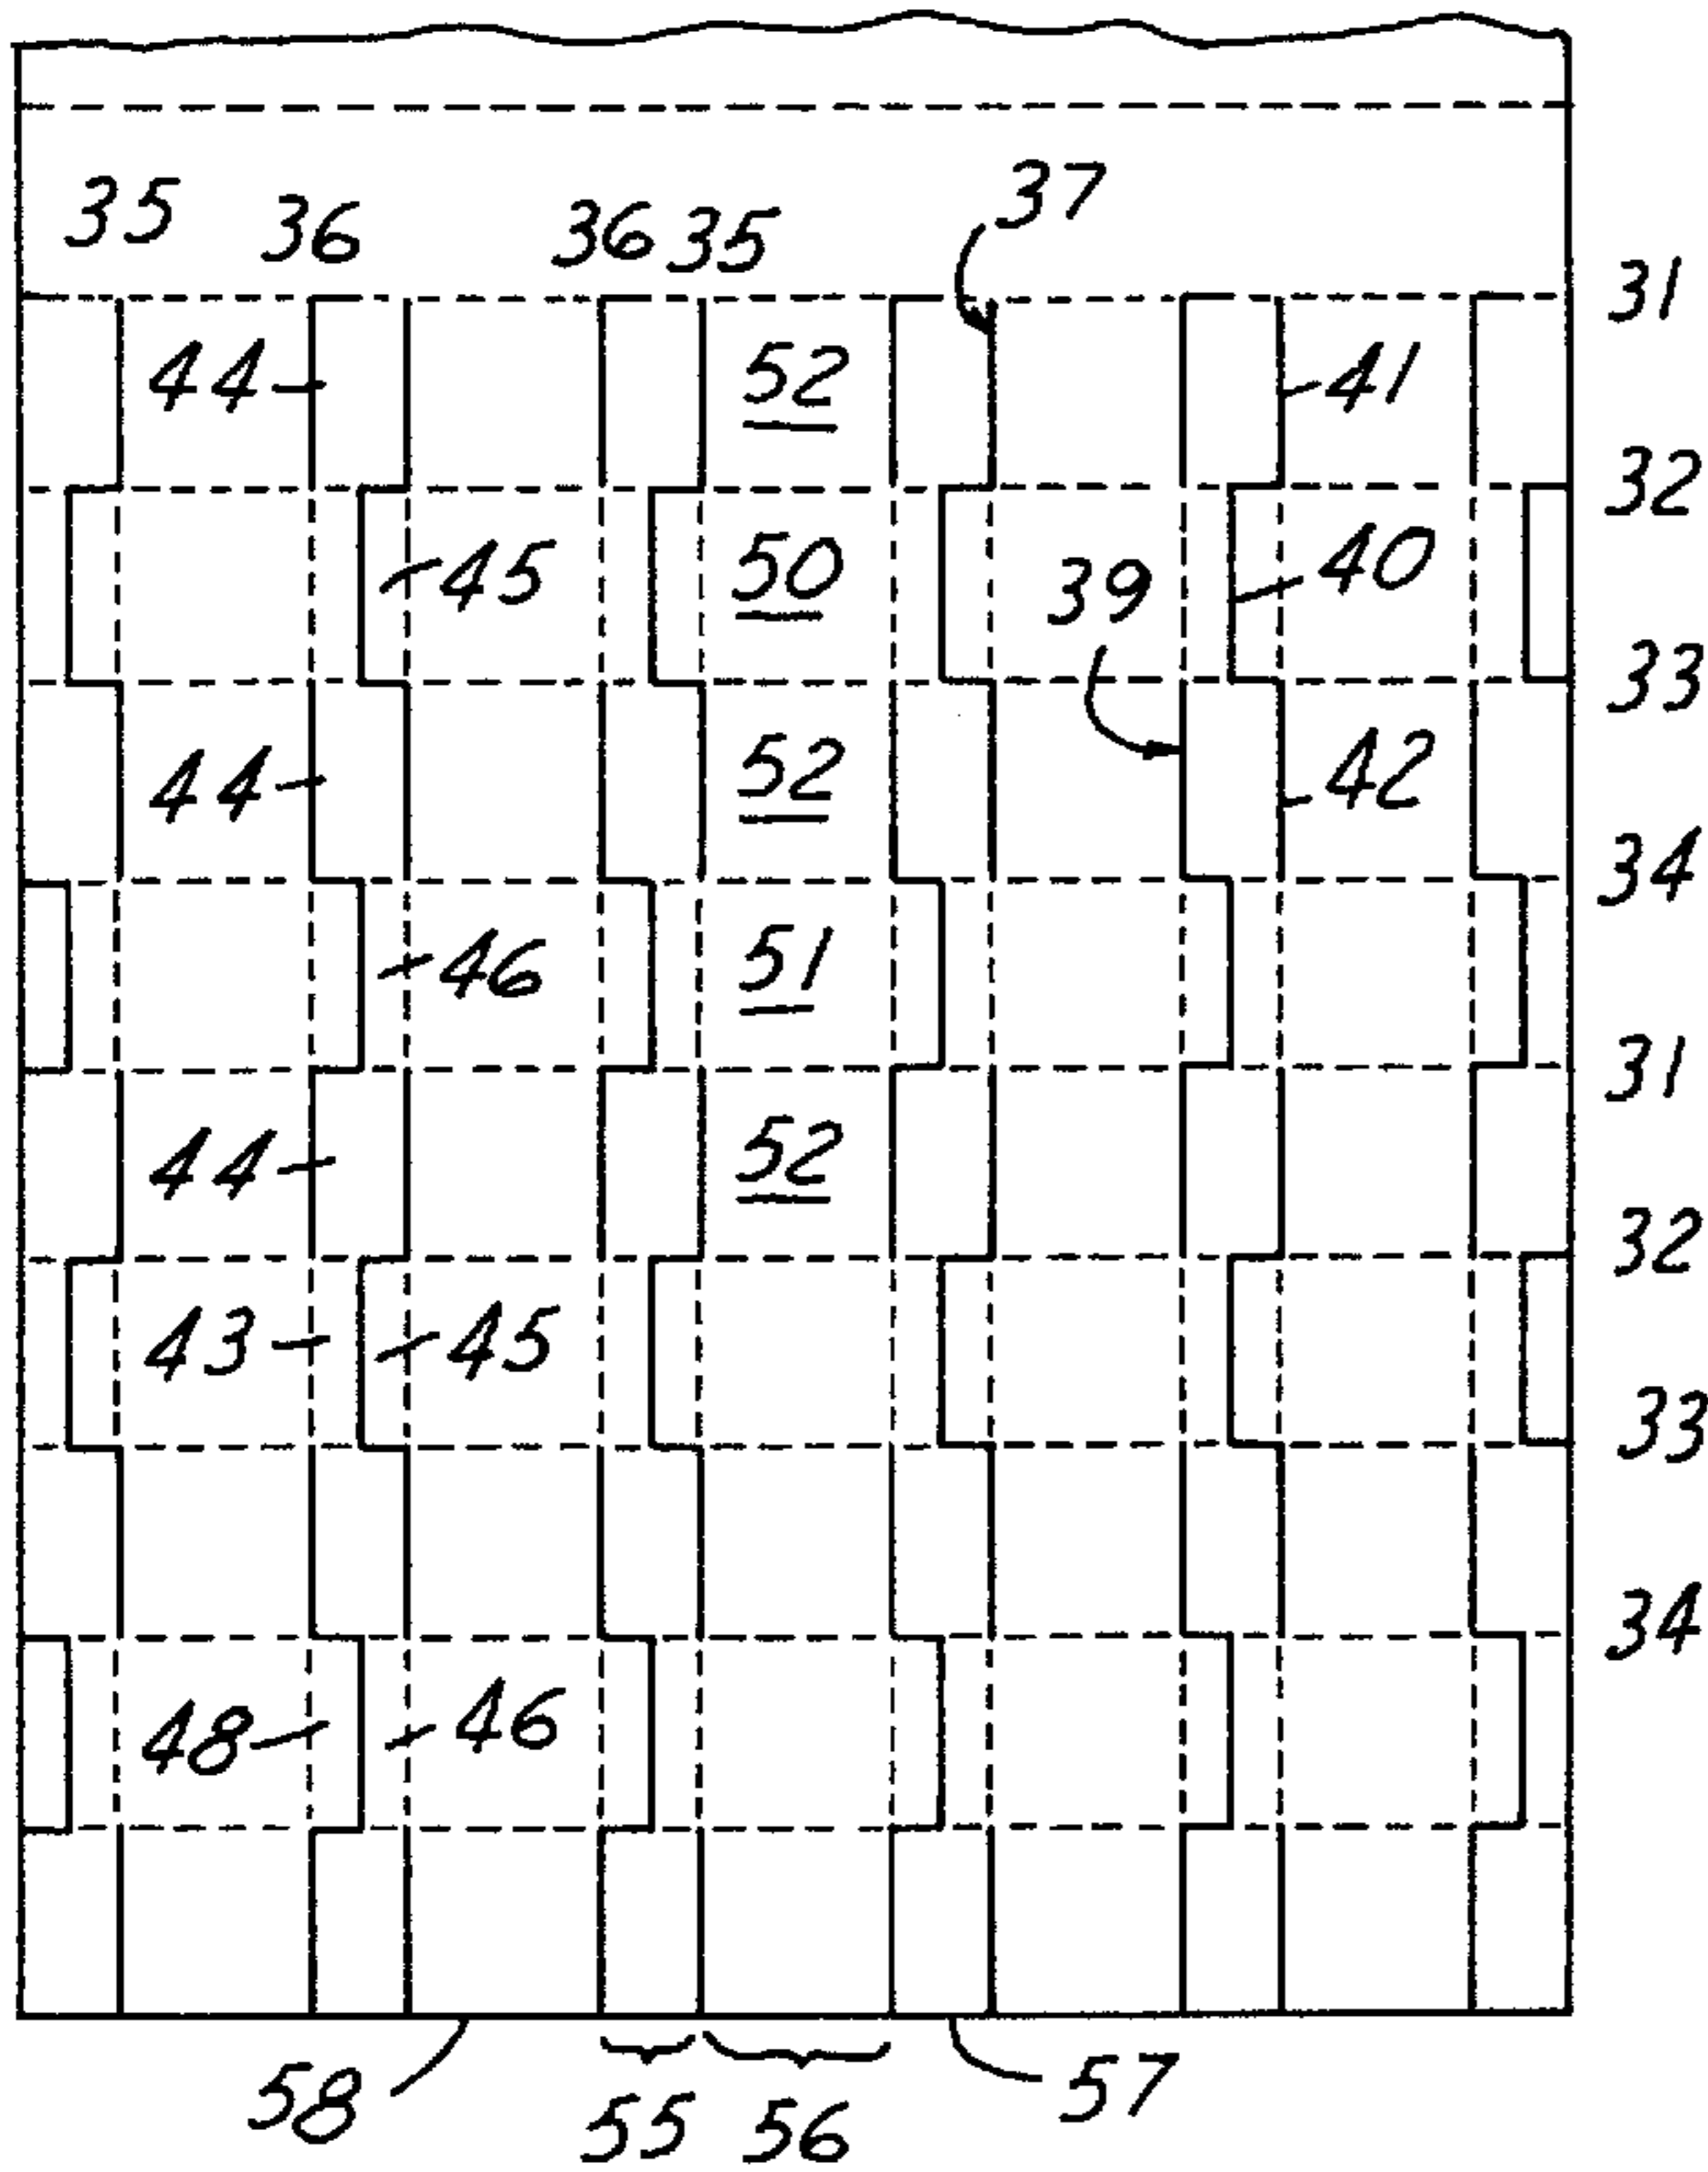 37
35 36 36 35
31
44 52 41
32
45 50 39 40
33
44 52 42
34
46 51
31
44 52
32
43 45
33
34
48 46
58 55 56 57